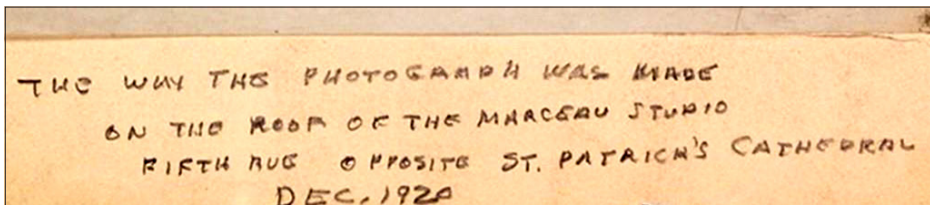 THE WAY THE PHOTOGAMPH WAS MADE
ON THE ROOF OF THE MARCEAU STUDIO
FIFTH AVE OPPOSITE ST. PATRICK'S CATHEDRAL
DEC. 1920